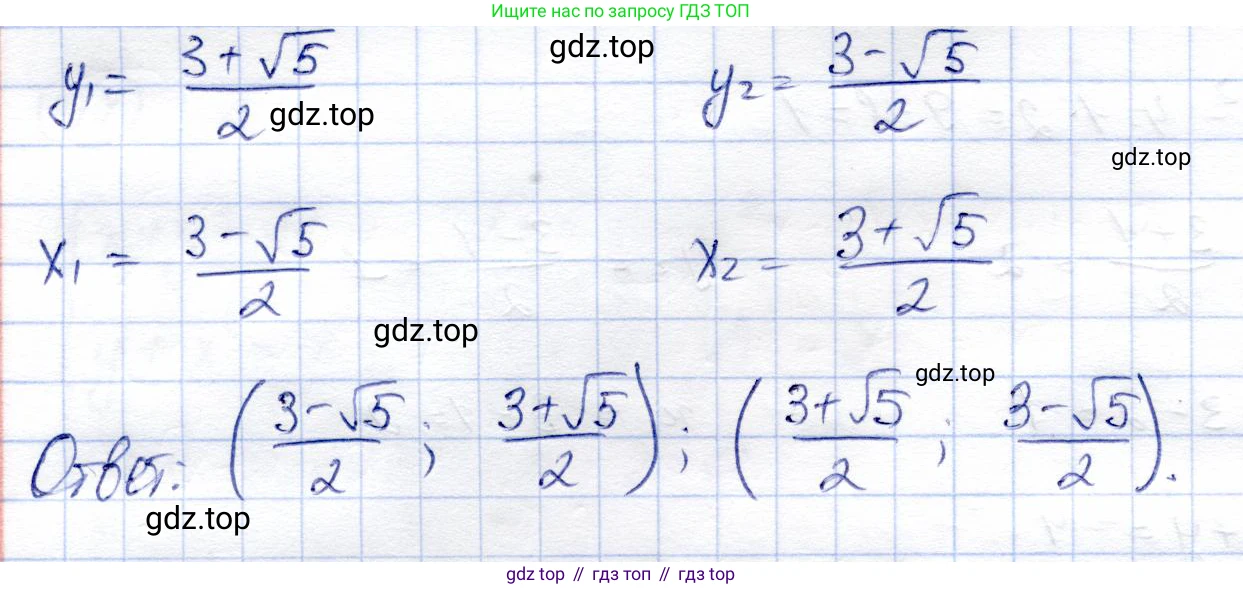 Ищите нас по запросу ГДЗ ТОП
y₁ = (3 + √5)/2 gdz.top gdz.top y₂ = (3 - √5)/2
gdz.top
x₁ = (3 - √5)/2 x₂ = (3 + √5)/2
gdz.top
gdz.top
Ответ: ((3 - √5)/2 ; (3 + √5)/2) ; ((3 + √5)/2 ; (3 - √5)/2).
gdz.top
gdz top // гдз топ // гдз top